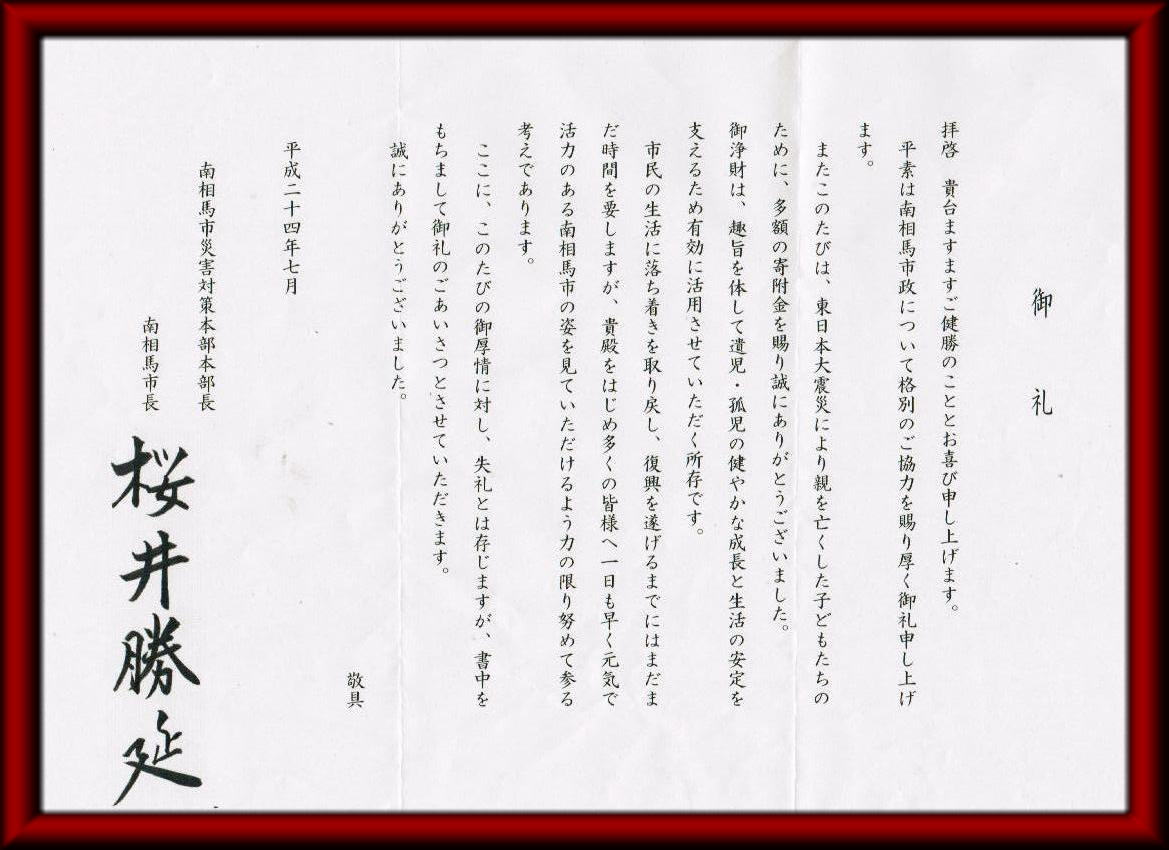 御礼
拝啓　貴台ますますご健勝のこととお喜び申し上げます。
平素は南相馬市政について格別のご協力を賜り厚く御礼申し上げ
ます。
またこのたびは、東日本大震災により親を亡くした子どもたちの
ために、多額の寄附金を賜り誠にありがとうございました。
御浄財は、趣旨を体して遺児・孤児の健やかな成長と生活の安定を
支えるため有効に活用させていただく所存です。
市民の生活に落ち着きを取り戻し、復興を遂げるまでにはまだま
だ時間を要しますが、貴殿をはじめ多くの皆様へ一日も早く元気で
活力のある南相馬市の姿を見ていただけるよう力の限り努めて参る
考えであります。
ここに、このたびの御厚情に対し、失礼とは存じますが、書中を
もちまして御礼のごあいさつとさせていただきます。
誠にありがとうございました。
敬具
平成二十四年七月
南相馬市災害対策本部本部長
南相馬市長
桜井勝延